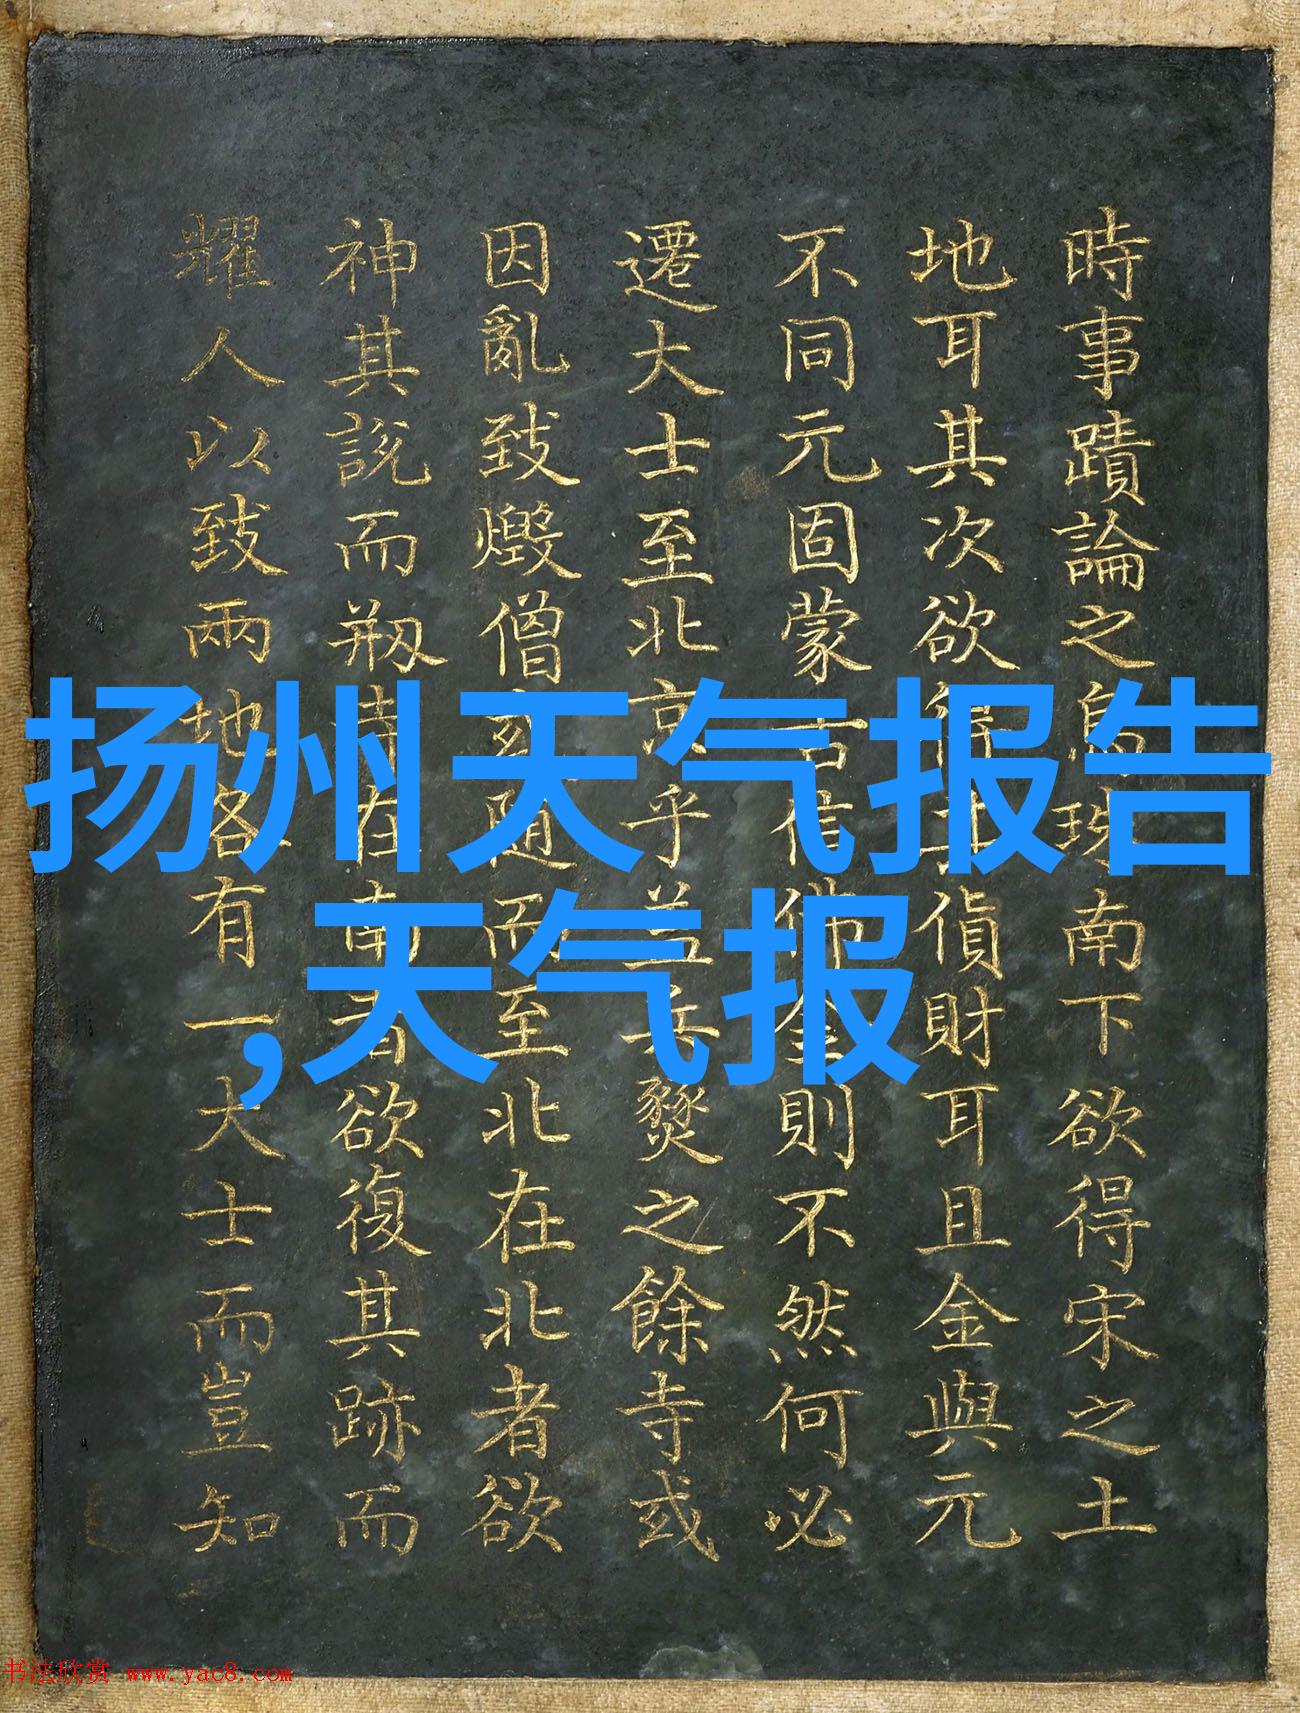 時事蹟論之烏珠南下欲得宋之土
地耳其次欲得貨財耳且金與元
不同元固蒙古信佛金則不然何必
遷大士至北京乎兵燹之餘寺或
因亂致燬僧或随而至北在北者欲
神其說而剏時在南者欲復其跡而
耀人以致兩地各有一大士而豈知
扬州天气报告
,天气报
书法欣赏 www.yac8.com